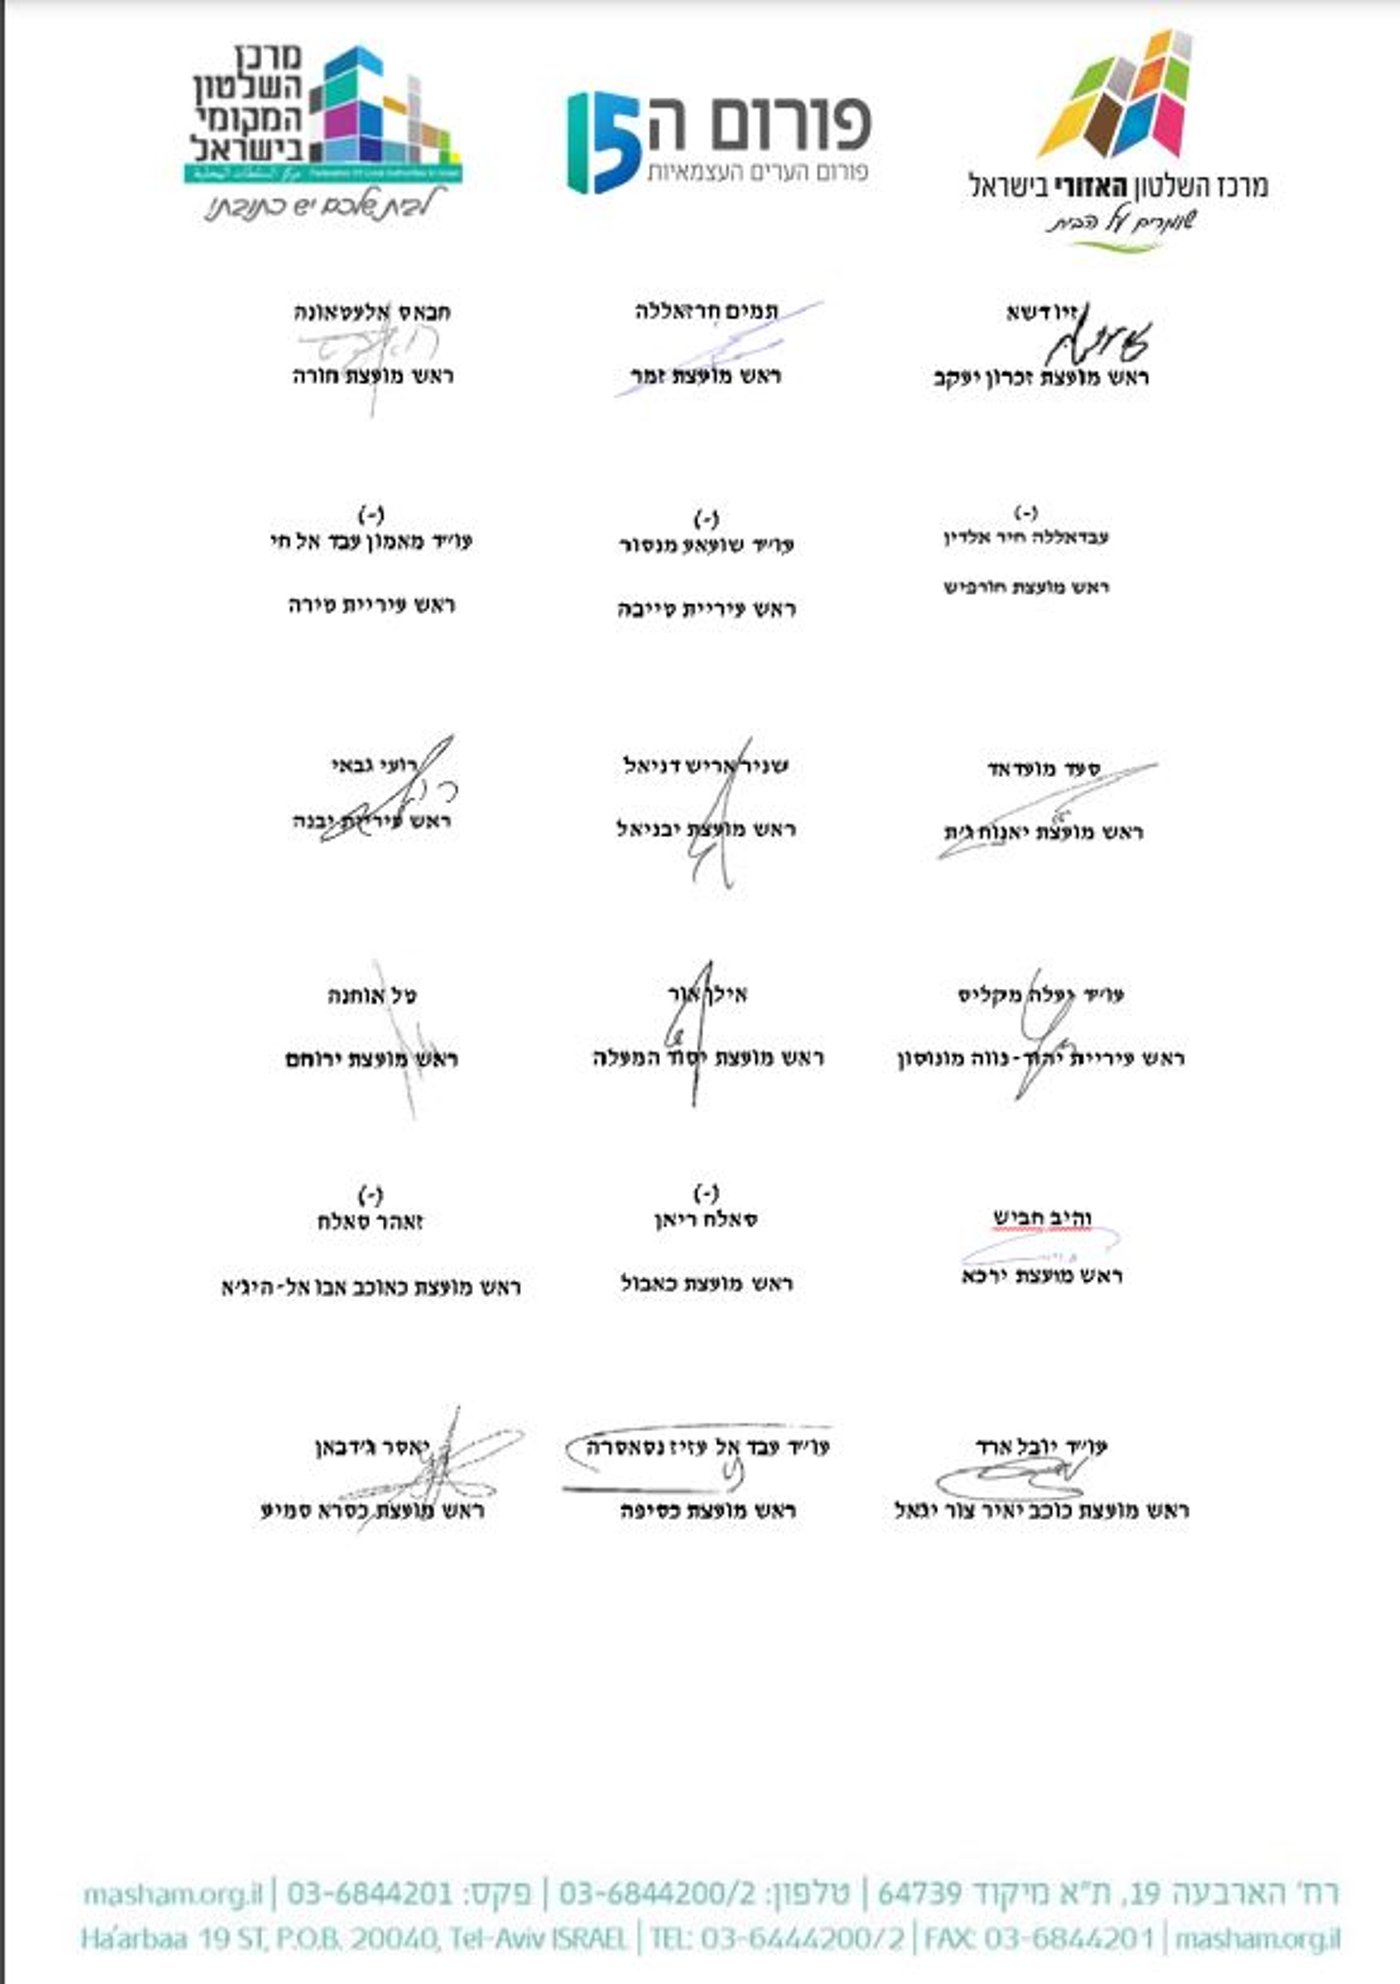 מרכז
השלטון
המקומי
בישראל
Federation Of Local Authorities in Israel
לבית שלכם יש כתובת!
פורום ה15
פורום הערים העצמאיות
מרכז השלטון האזורי בישראל
שומרים על הבית
זיו דשא
ראש מועצת זכרון יעקב
תמים חרזאללה
ראש מועצת זמר
חבאס אלעטאונה
ראש מועצת חורה
(-)
עבדאללה חיר אלדין
ראש מועצת חורפיש
(-)
עו״ד שועאע מנסור
ראש עיריית טייבה
(-)
עו״ד מאמון עבד אל חי
ראש עיריית טירה
סעד מועדאד
ראש מועצת יאנוח ג׳ת
שניר אריש דניאל
ראש מועצת יבניאל
רועי גבאי
ראש עיריית יבנה
עו״ד יעלה מקליס
ראש עיריית יהוד-נווה מונוסון
אילן אור
ראש מועצת יסוד המעלה
טל אוחנה
ראש מועצת ירוחם
והיב חביש
ראש מועצת ירכא
(-)
סאלח ריאן
ראש מועצת כאבול
(-)
זאהר סאלח
ראש מועצת כאוכב אבו אל-היג׳א
עו״ד יובל ארד
ראש מועצת כוכב יאיר צור יגאל
עו״ד עבד אל עזיז נסאסרה
ראש מועצת כסיפה
יאסר ג׳דבאן
ראש מועצת כסרא סמיע
רח׳ הארבעה 19, ת״א מיקוד 64739 | טלפון: 03-6844200/2 | פקס: 03-6844201 | masham.org.il
Ha'arbaa 19 ST, P.O.B. 20040, Tel-Aviv ISRAEL | TEL: 03-6444200/2 | FAX: 03-6844201 | masham.org.il